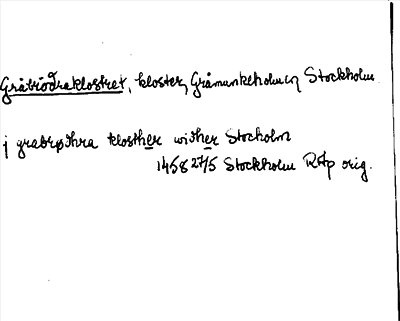 Gråbrödraklostret, kloster, Gråmunkeholmen, Stockholm
j grabrøthra klosther widher Stocholm
1458 27/5 Stockholm RAp orig.